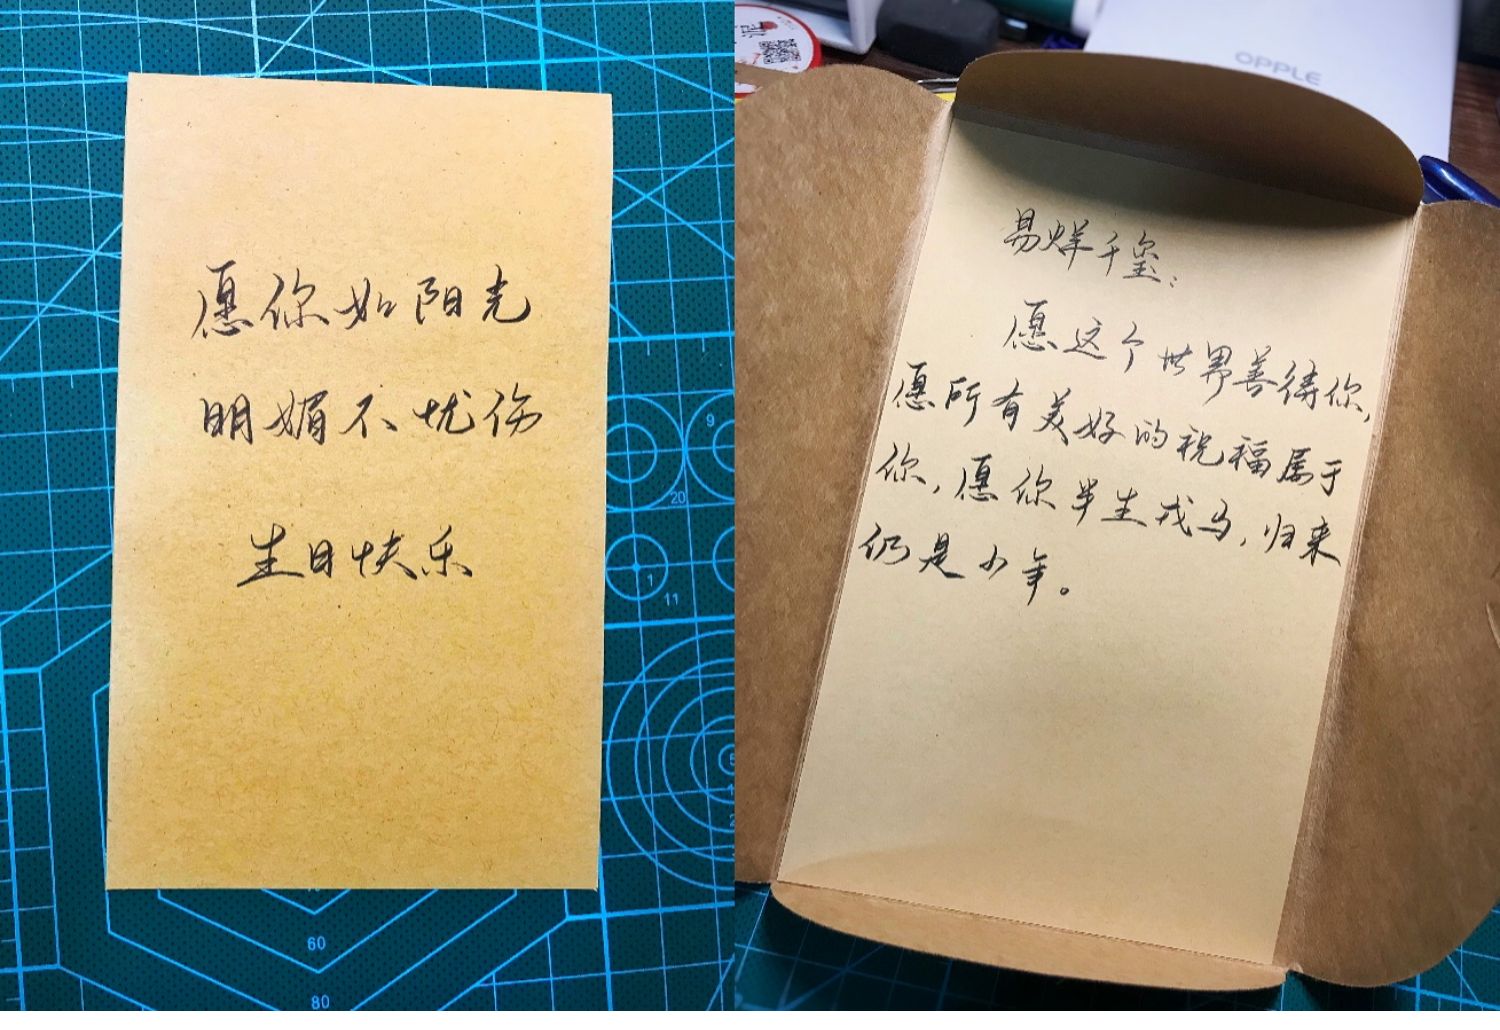 愿你如阳光
明媚不忧伤
生日快乐
易烊千玺：
愿这个世界善待你，
愿所有美好的祝福属于
你，愿你半生戎马，归来
仍是少年。
OPPLE
9
20
1
11
60
80